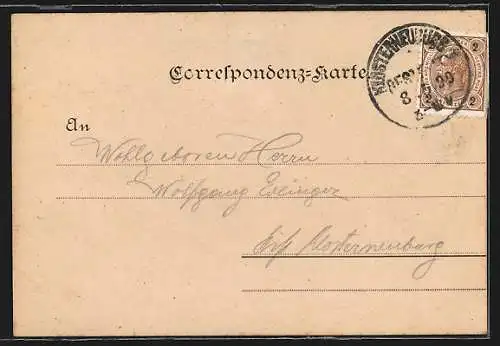 Correspondenz-Karte
KLOSTERNEUBURG
8
99
2 2
An
Wohlgeboren Herrn
Wolfgang
Klosterneuburg